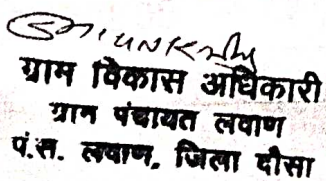 ग्राम विकास अधिकारी
ग्राम पंचायत लवाण
पं.स. लवाण, जिला दौसा